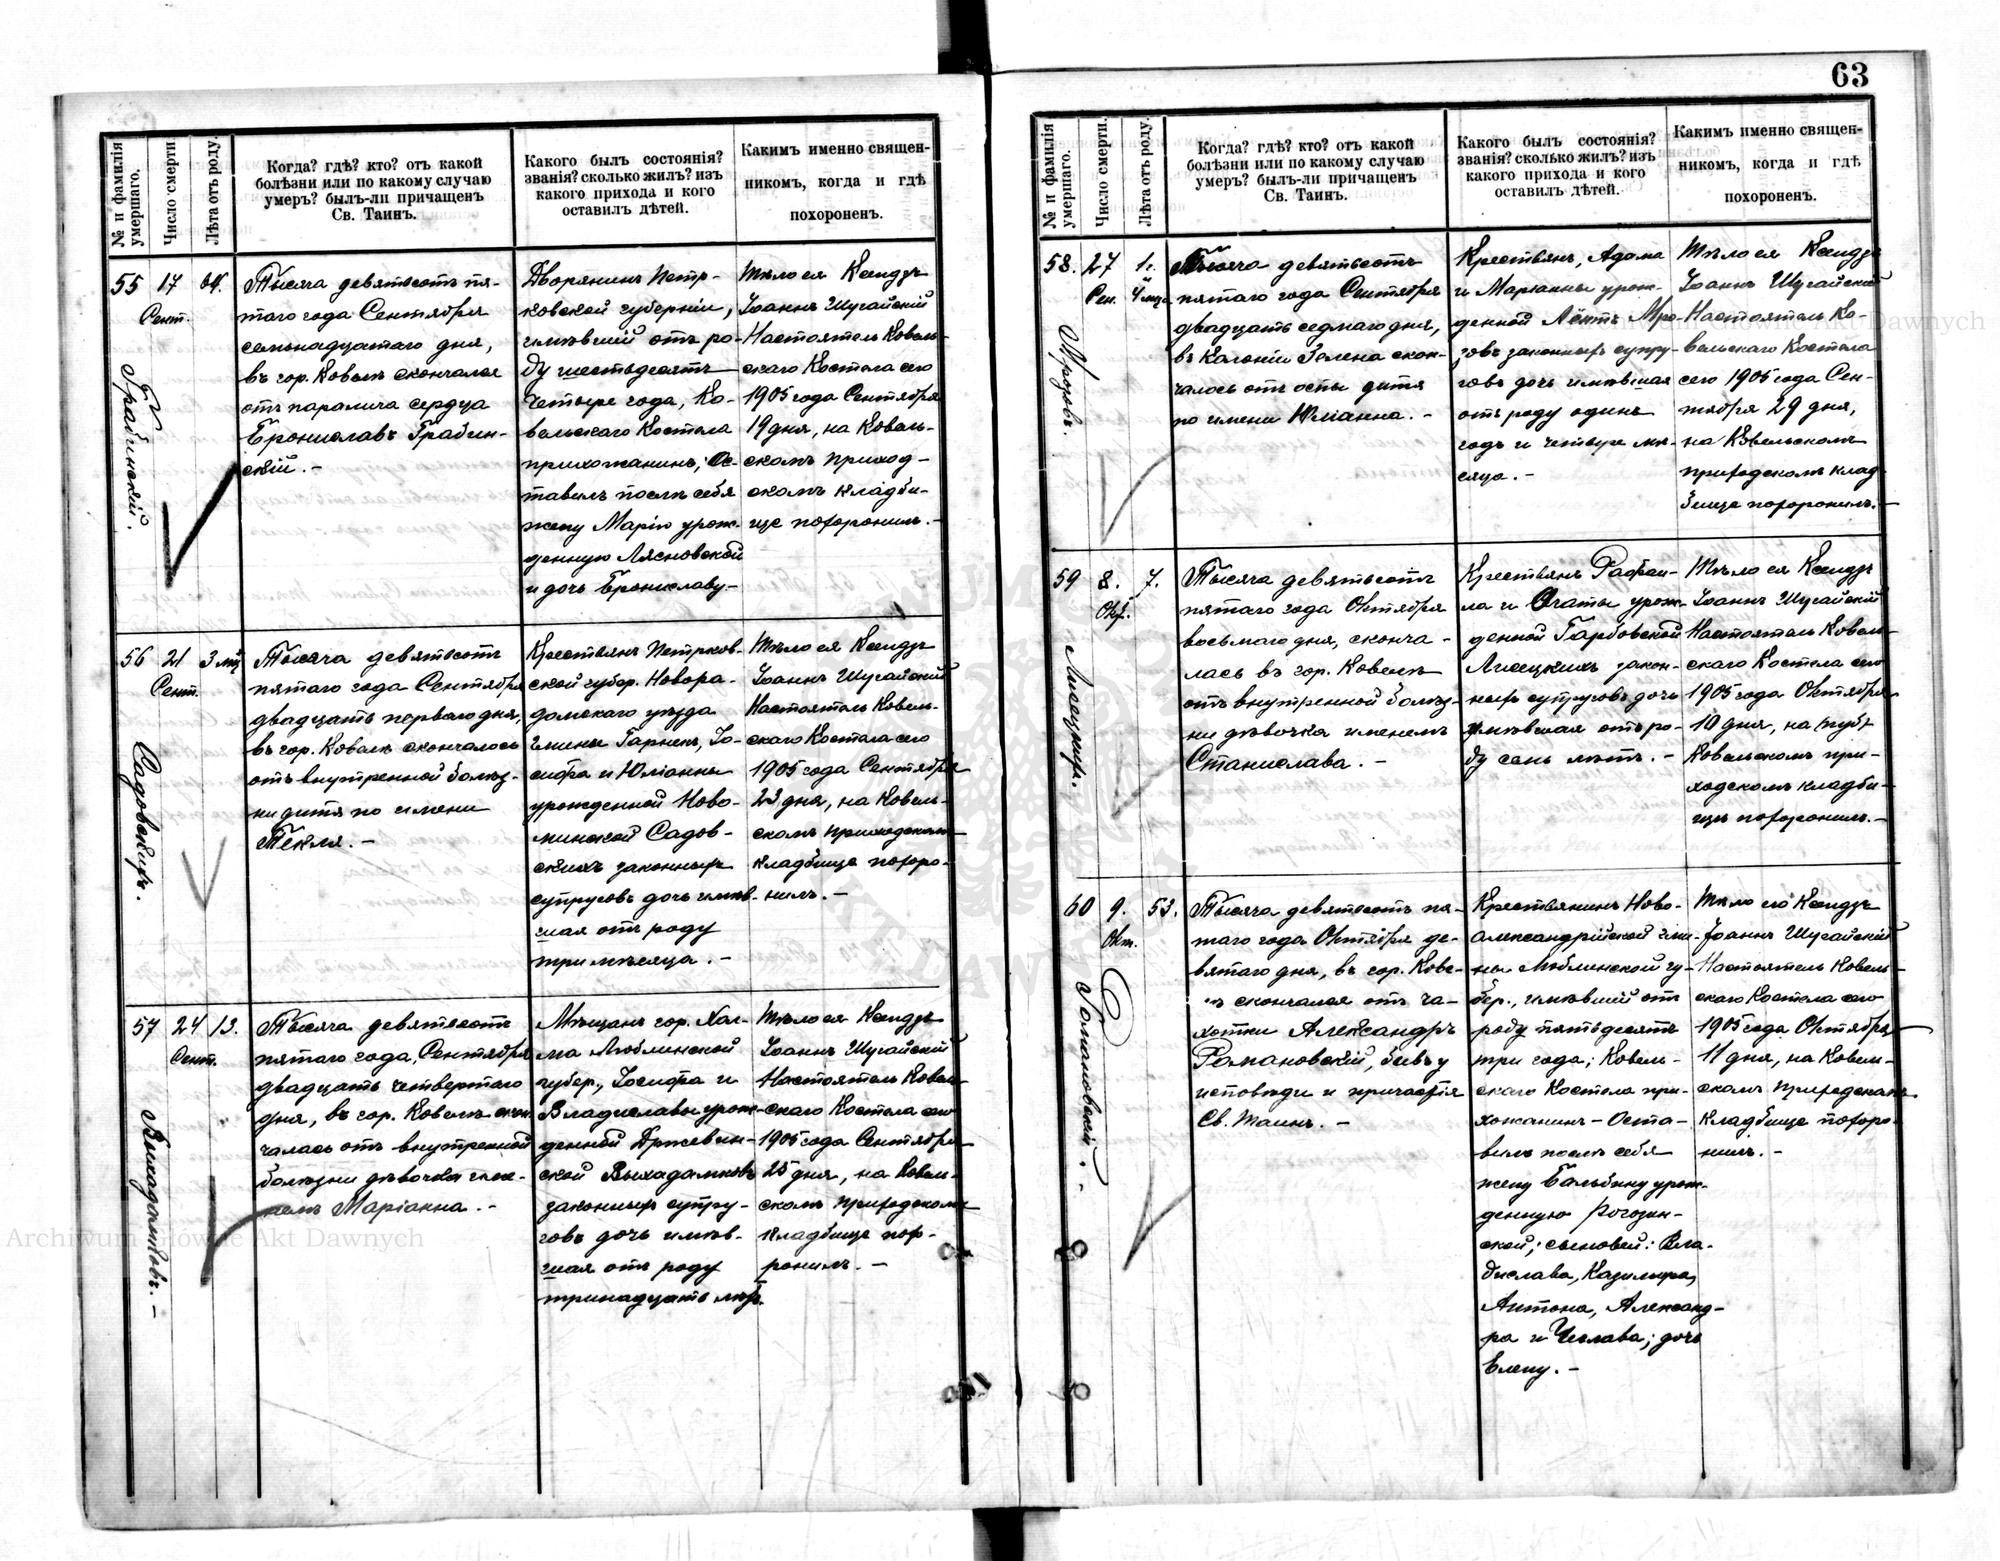 63
№ и фамилія умершаго.
Число смерти.
Лѣта отъ роду.
Когда? гдѣ? кто? отъ какой
болѣзни или по какому случаю
умеръ? былъ-ли причащенъ
Св. Таинъ.
Какого былъ состоянія?
званія? сколько жилъ? изъ
какого прихода и кого
оставилъ дѣтей.
Какимъ именно священ-
никомъ, когда и гдѣ
похороненъ.
55
17
Сент.
64.
Грабинскій.
Тысяча девятьсотъ пя-
таго года Сентября
семьнадцатаго дня,
въ гор. Ковелѣ скончался
отъ паралича сердца
Брониславъ Грабин-
скій. -
Дворянинъ Петр-
ковской губерніи,
имѣвшій отъ ро-
ду шестьдесятъ
четыре года, Ко-
вельскаго Костела
прихожанинъ; Ос-
тавилъ послѣ себя
жену Марію урож-
денную Лясновской
и дочь Брониславу-
Тѣло ея Ксендзъ
Іоаннъ Шугайскій
Настоятель Ковель-
скаго Костела сего
1905 года Сентября
19 дня, на Ковель-
скомъ приход-
скомъ кладби-
ще похоронилъ. -
56
21
Сент.
3 мц
Садовскихъ.
Тысяча девятьсотъ
пятаго года Сентября
двадцать перваго дня,
въ гор. Ковелѣ скончалось
отъ внутренной болѣз-
ни дитя по имени
Текля. -
Крестьянъ Петрков-
ской губер. Новора-
домскаго уѣзда
гмины Гарнекъ, Іо-
сифа и Юліанны
урожденной Ново-
минской Садов-
скихъ законныхъ
супруговъ дочь имѣв-
шая отъ роду
три мѣсяца. -
Тѣло ея Ксендзъ
Іоаннъ Шугайскій
Настоятель Ковель-
скаго Костела сего
1905 года Сентября
23 дня, на Ковель-
скомъ приходскомъ
кладбище похоро-
нилъ. -
57
24
Сент.
13.
Тысяча девятьсотъ
пятаго года, Сентября
двадцать четвертаго
дня, въ гор. Ковелѣ скон-
чалась отъ внутренной
болѣзни дѣвочка име-
немъ Маріанна. -
Мѣщанъ гор. Хол-
ма Люблинской
губер., Іосифа и
Владиславы урож-
денной Држевин-
ской
законныхъ супру-
говъ дочь имѣв-
шая отъ роду
тринадцать лѣтъ.
Тѣло ея Ксендзъ
Іоаннъ Шугайскій
Настоятель Ковель-
скаго Костела сего
1905 года Сентября
25 дня, на Ковель-
скомъ приходскомъ
кладбище похо-
ронилъ. -
№ и фамилія умершаго.
Число смерти.
Лѣта отъ роду.
Когда? гдѣ? кто? отъ какой
болѣзни или по какому случаю
умеръ? былъ-ли причащенъ
Св. Таинъ.
Какого былъ состоянія?
званія? сколько жилъ? изъ
какого прихода и кого
оставилъ дѣтей.
Какимъ именно священ-
никомъ, когда и гдѣ
похороненъ.
58.
27
Сен.
1.
4 мца
Мрозовъ.
Тысяча девятьсотъ
пятаго года Сентября
двадцать седмаго дня,
въ Колоніи Гелена скон-
чалось отъ оспы дитя
по имени Юліанна. -
Крестьянъ, Адама
и Маріанны урож-
денной Мро-
зовъ законныхъ супру-
говъ дочь имѣвшая
отъ роду одинъ
годъ и четыре мѣ-
сяца. -
Тѣло ея Ксендзъ
Іоаннъ Шугайскій
Настоятель Ко-
вельскаго Костела
сего 1905 года Сен-
тября 29 дня,
на Ковельскомъ
приходскомъ клад-
бище похоронилъ. -
59
8.
Окт.
7.
Лисецкихъ.
Тысяча девятьсотъ
пятаго года Октября
восьмаго дня, сконча-
лась въ гор. Ковелѣ
отъ внутренной болѣз-
ни дѣвочка именемъ
Станислава. -
Крестьянъ Рафаи-
ла и Агаты урож-
денной Гарбовской
Лисецкихъ закон-
ныхъ супруговъ дочь
имѣвшая отъ ро-
ду семь лѣтъ. -
Тѣло ея Ксендзъ
Іоаннъ Шугайскій
Настоятель Ковель-
скаго Костела сего
1905 года Октября
10 дня, на
Ковельскомъ при-
ходскомъ кладби-
ще похоронилъ. -
60
9.
Окт.
53.
Романовскій. -
Тысяча девятьсотъ пя-
таго года Октября де-
вятаго дня, въ гор. Кове-
лѣ скончался отъ ча-
хотки Александръ
Романовскій, бывъ у
исповѣди и причастія
Св. Таинъ. -
Крестьянинъ Ново-
александрійской гми-
ны Люблинской гу-
бер., имѣвшій отъ
роду пятьдесятъ
три года; Ковель-
скаго Костела при-
хожанинъ - Оста-
вилъ послѣ себя
жену Бальбину урож-
денную Рогозин-
ской; сыновей: Вла-
дислава, Казимира,
Антона, Александ-
ра и Чеслава; дочь
Елену. -
Тѣло его Ксендзъ
Іоаннъ Шугайскій
Настоятель Ковель-
скаго Костела сего
1905 года Октября
11 дня, на Ковель-
скомъ приходскомъ
кладбище похоро-
нилъ. -
Archiwum Główne Akt Dawnych